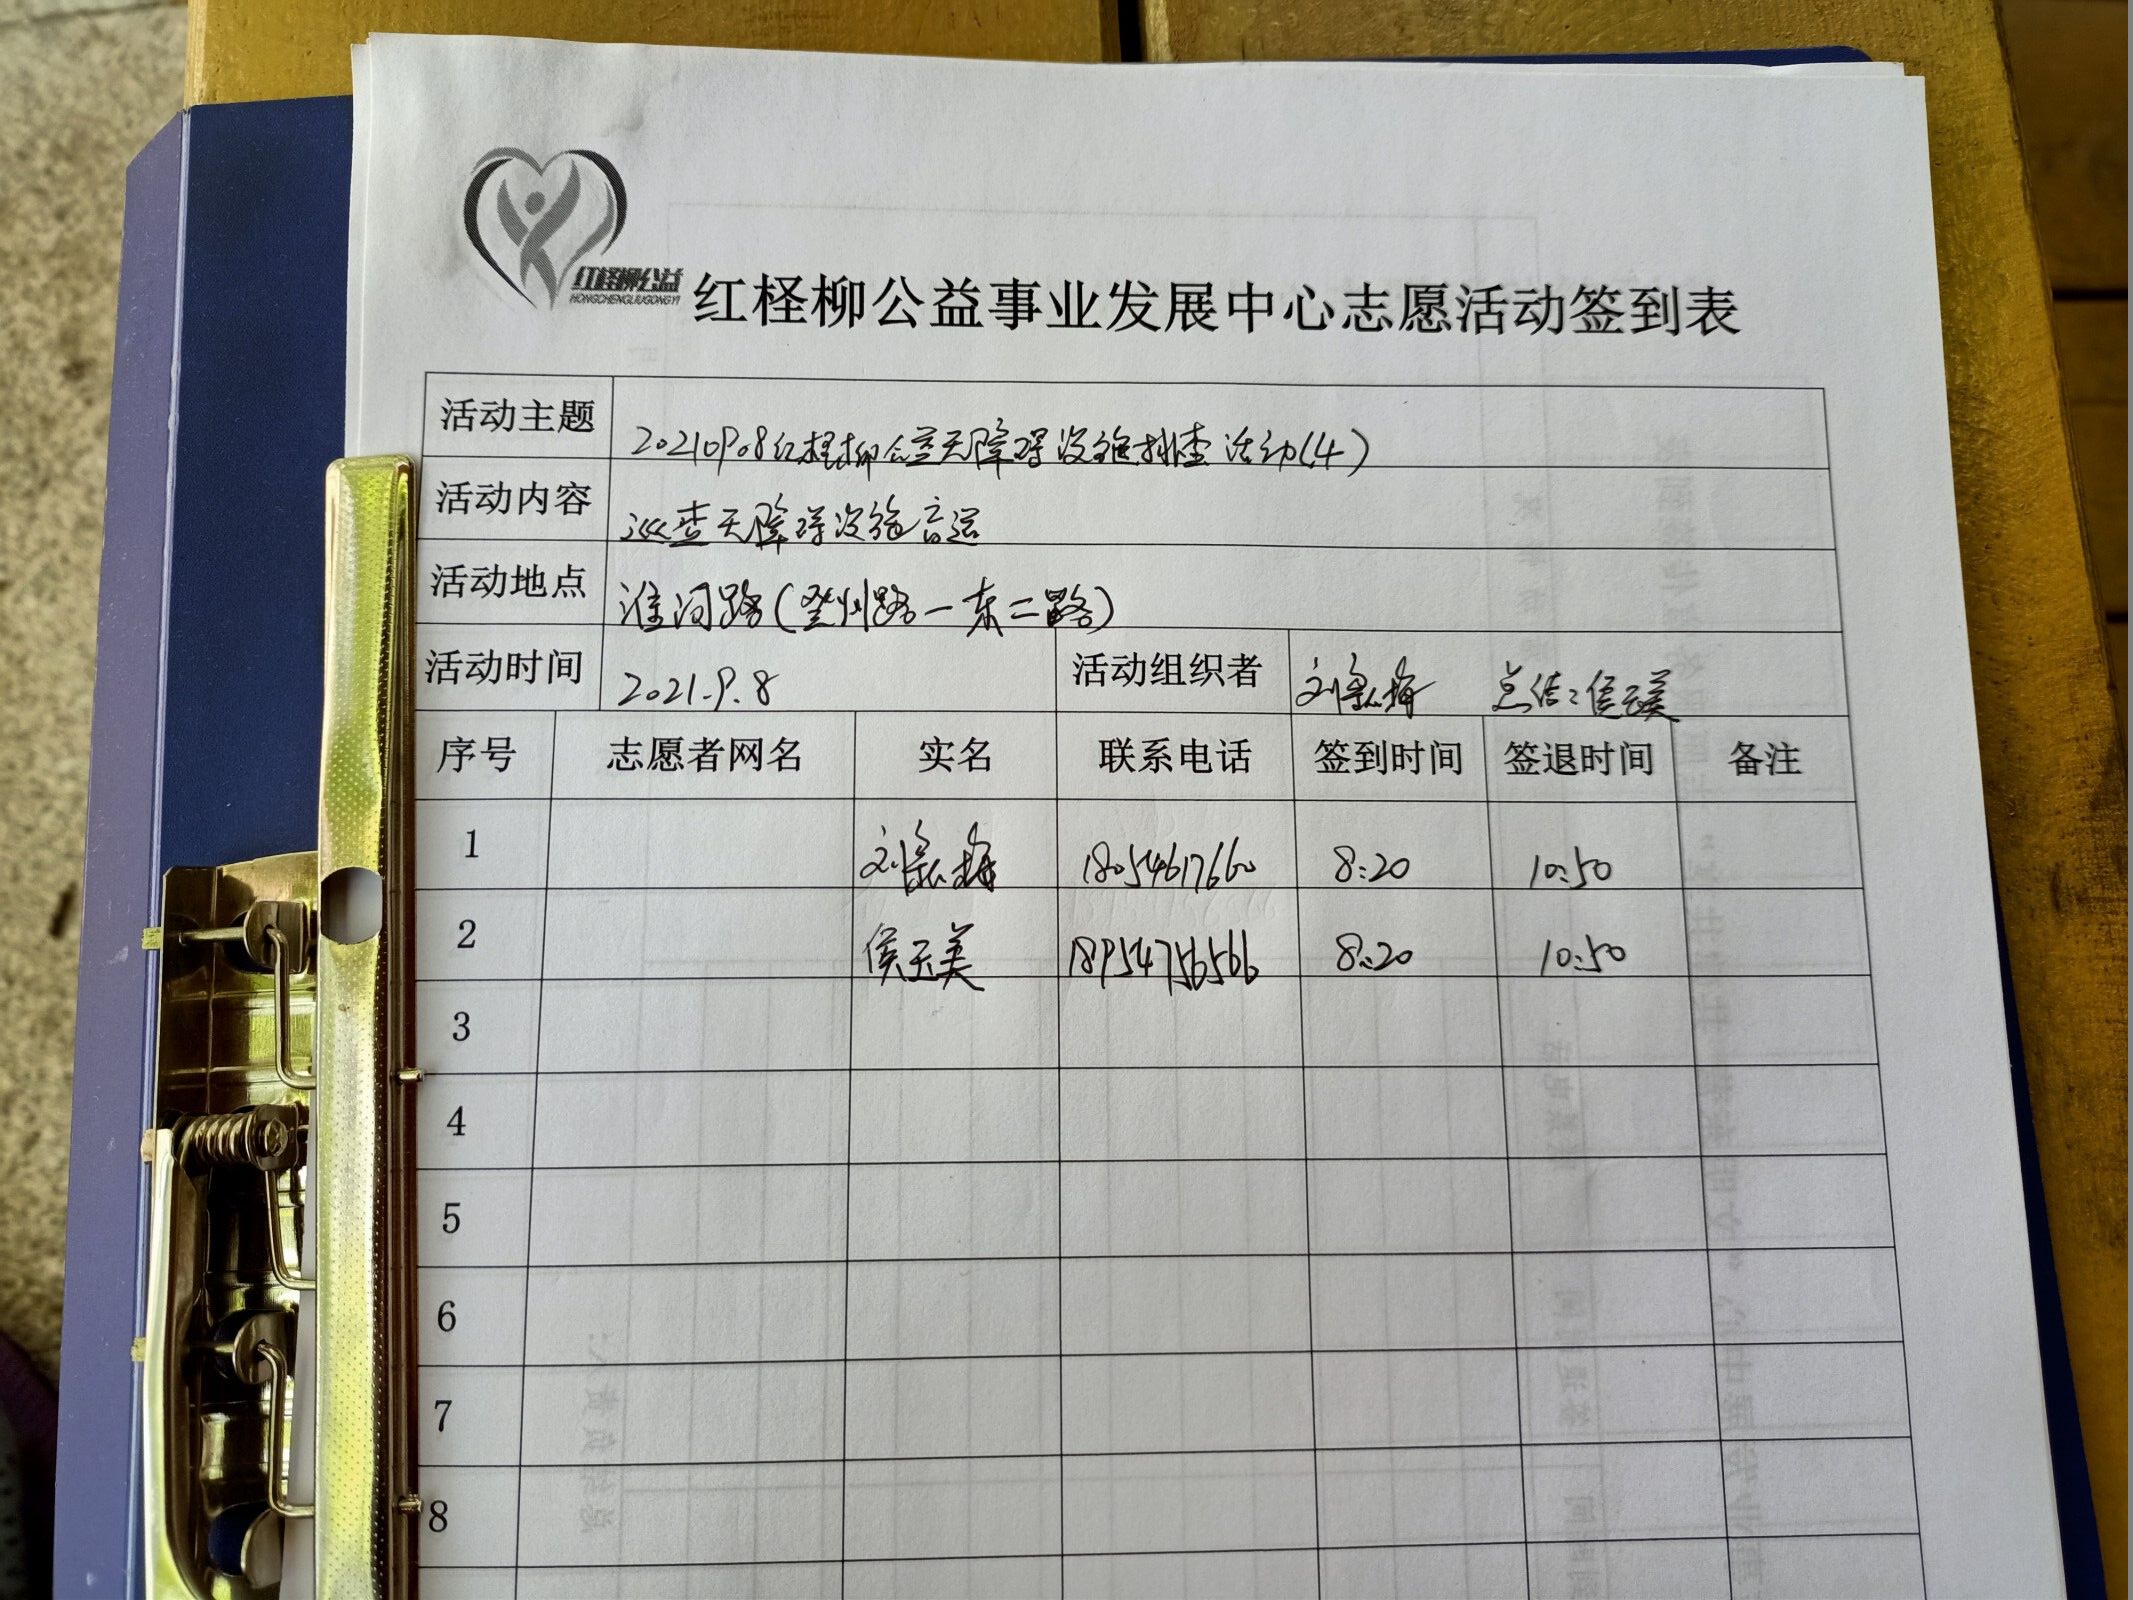 红柽柳公益
HONGCHENGLIUGONGYI
红柽柳公益事业发展中心志愿活动签到表
活动主题 20210908红柽柳公益无障碍设施排查活动(4)
活动内容 巡查无障碍设施盲道
活动地点 淮河路(登州路一东二路)
活动时间 2021.9.8 活动组织者 刘梅 总结:侯玉美
序号 志愿者网名 实名 联系电话 签到时间 签退时间 备注
1 刘梅 18054617660 8:20 10:50
2 侯玉美 18954756566 8:20 10:50
3
4
5
6
7
8